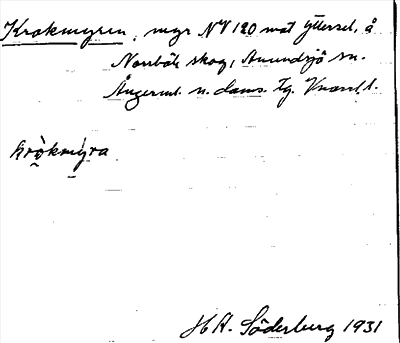 Krokmyren, myr NV 120 mot Yttersel, å
Norrbäck skog, Anundsjö sn.
Ångerml. n. doms. tg.
krokmyra
H A. Söderberg 1931